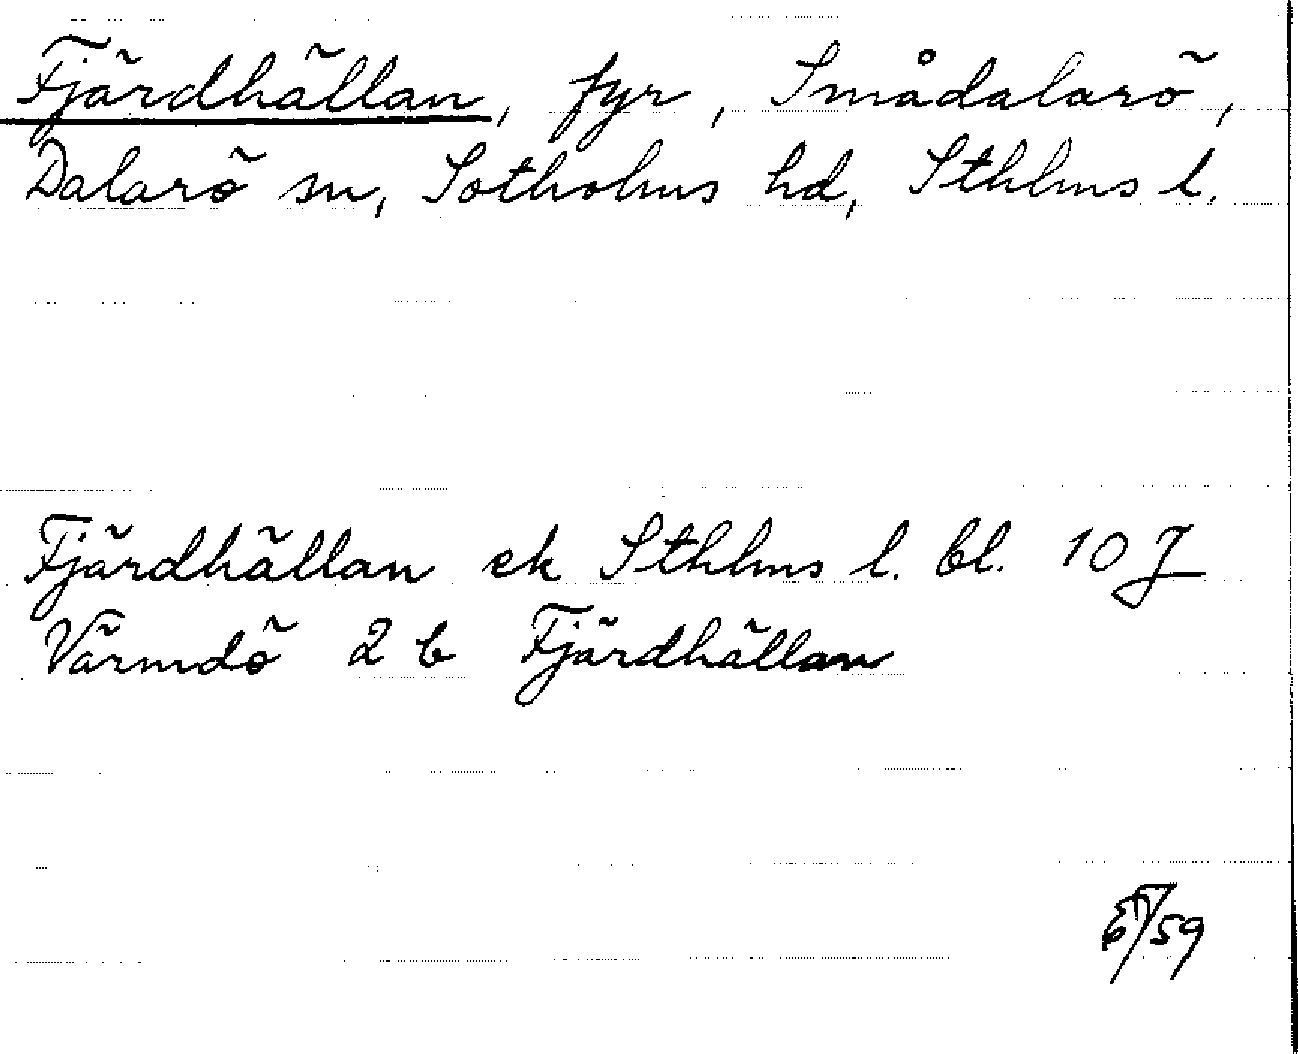 Fjärdhällan, fyr, Smådalarö,
Dalarö sn, Sotholms hd, Sthlms l.
Fjärdhällan ek Sthlms l. bl. 10 J
Värmdö 2 b Fjärdhällan
/59